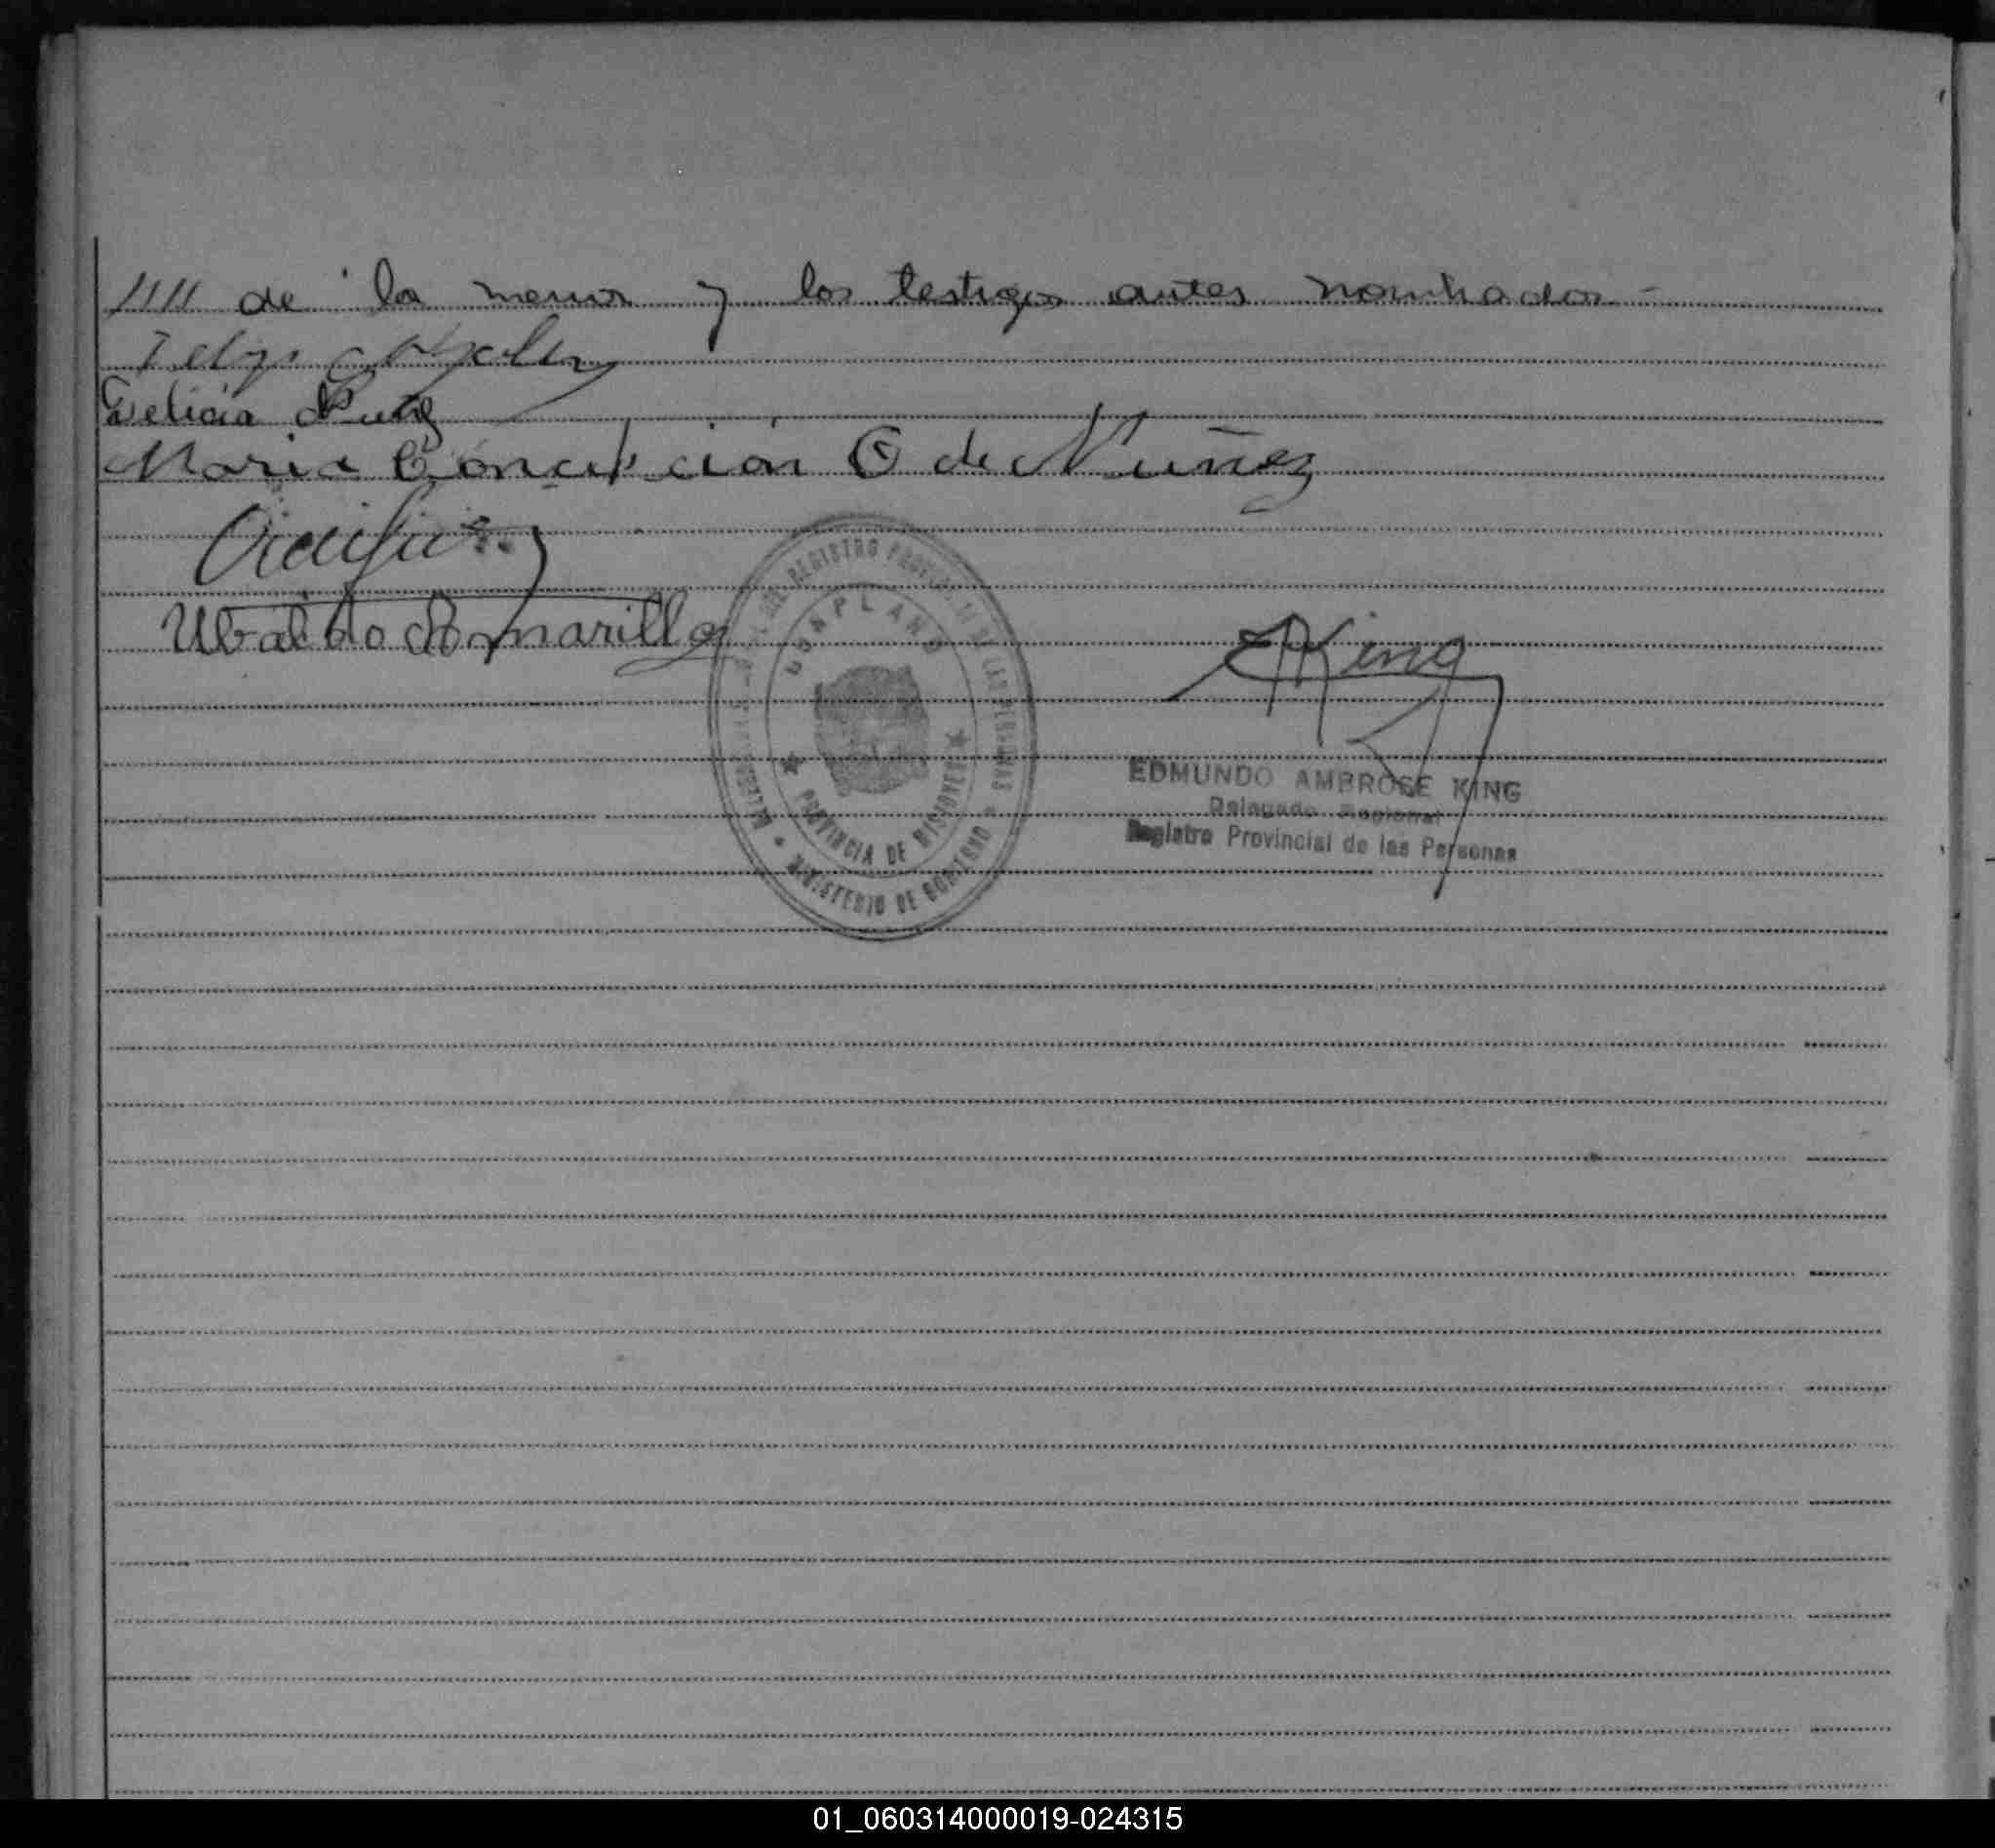 //// de la menor y los testigos antes nombrados -
Felicia Ruiz
Maria Concepcion G de Nuñez
Ubaldo Amarilla
EKing
REGISTRO PROVINCIAL DE LAS PERSONAS
MINISTERIO DE GOBIERNO
PROVINCIA DE MISIONES
EDMUNDO AMBROSE KING
Delegado Regional
Registro Provincial de las Personas
01_060314000019-024315